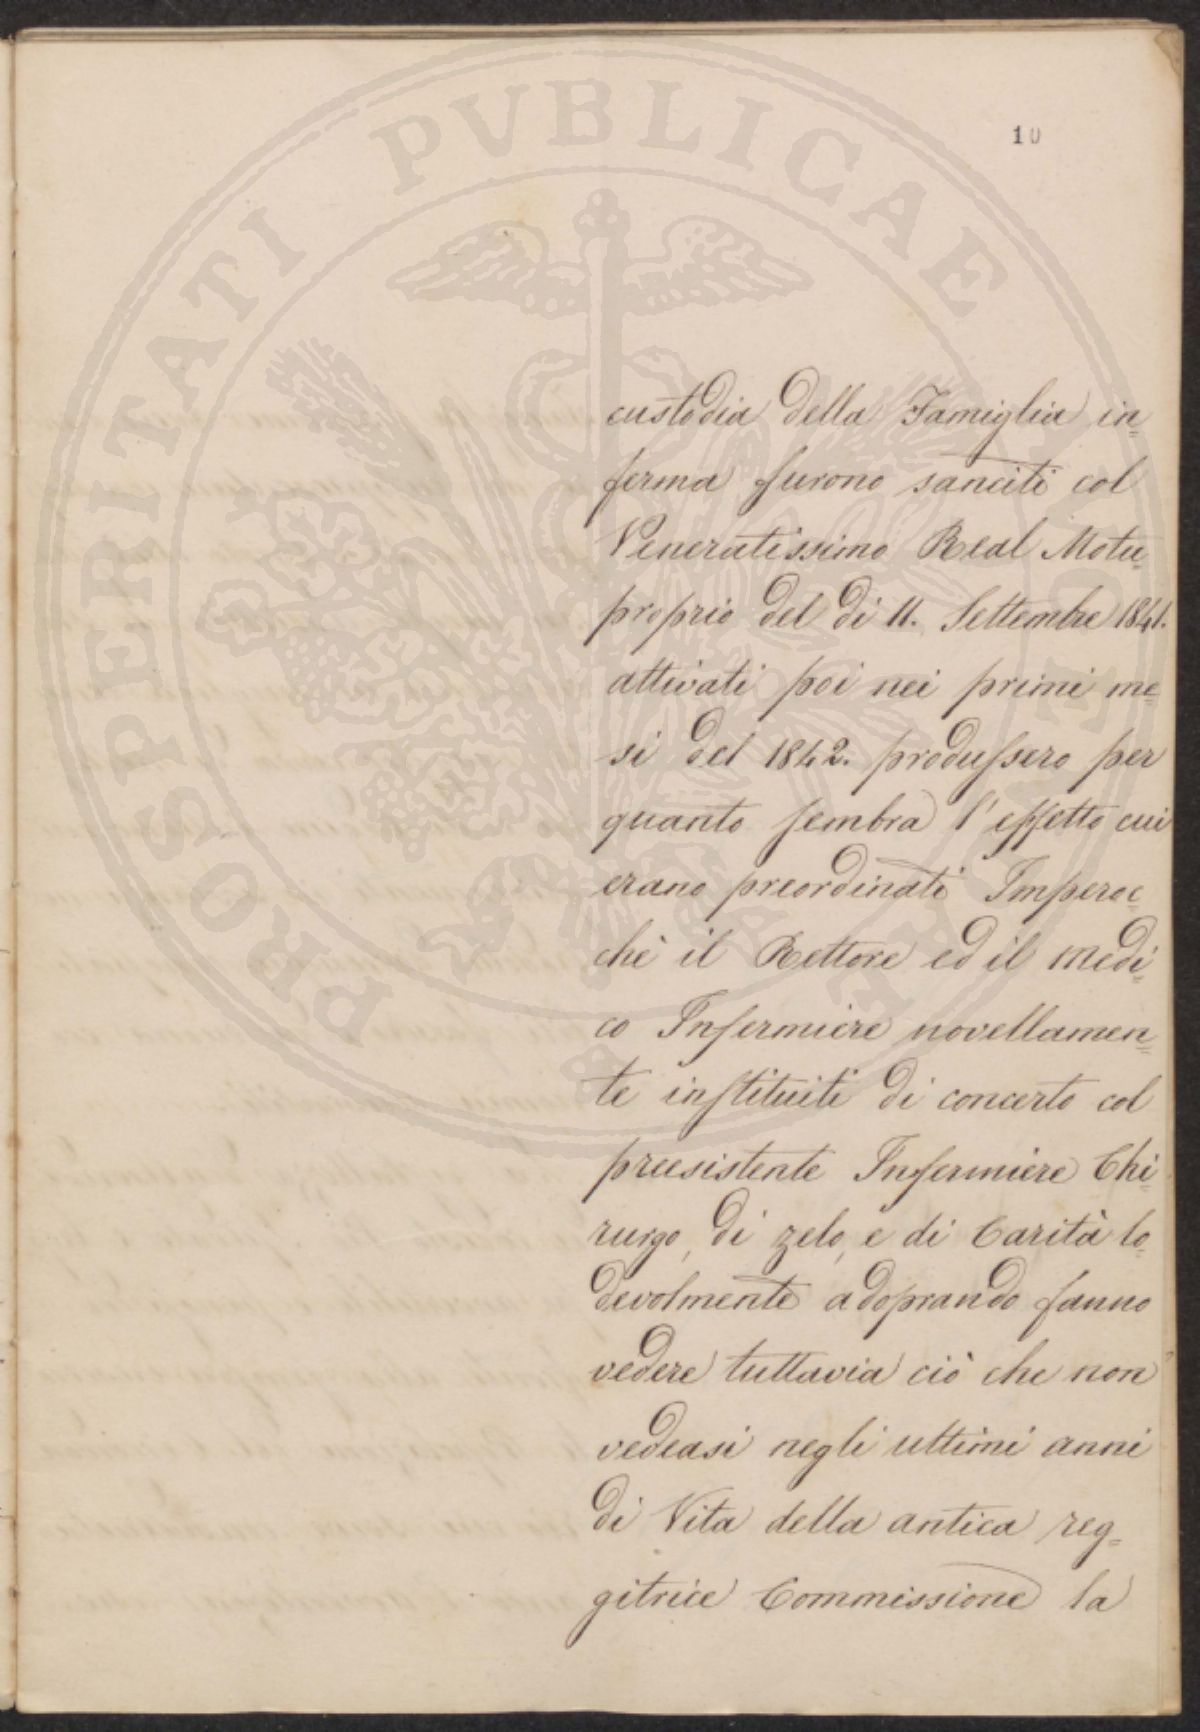 10
PROSPERITATI PVBLICAE
custodia della Famiglia in=
ferma furono sanciti col
Veneratissimo Real Motu
proprio del di 11. Settembre 1841.
attivati poi nei primi me
si del 1842. produssero per
quanto sembra l'effetto cui
erano preordinati Imperoc=
chè il Rettore ed il medi=
co Infermiere novellamen=
te instituiti di concerto col
preesistente Infermiere Chi=
rurgo, di zelo, e di Carità lo=
devolmente adoprando fanno
vedere tuttavia ciò che non
vedeasi negli ultimi anni
di Vita della antica reg=
gitrice Commissione la